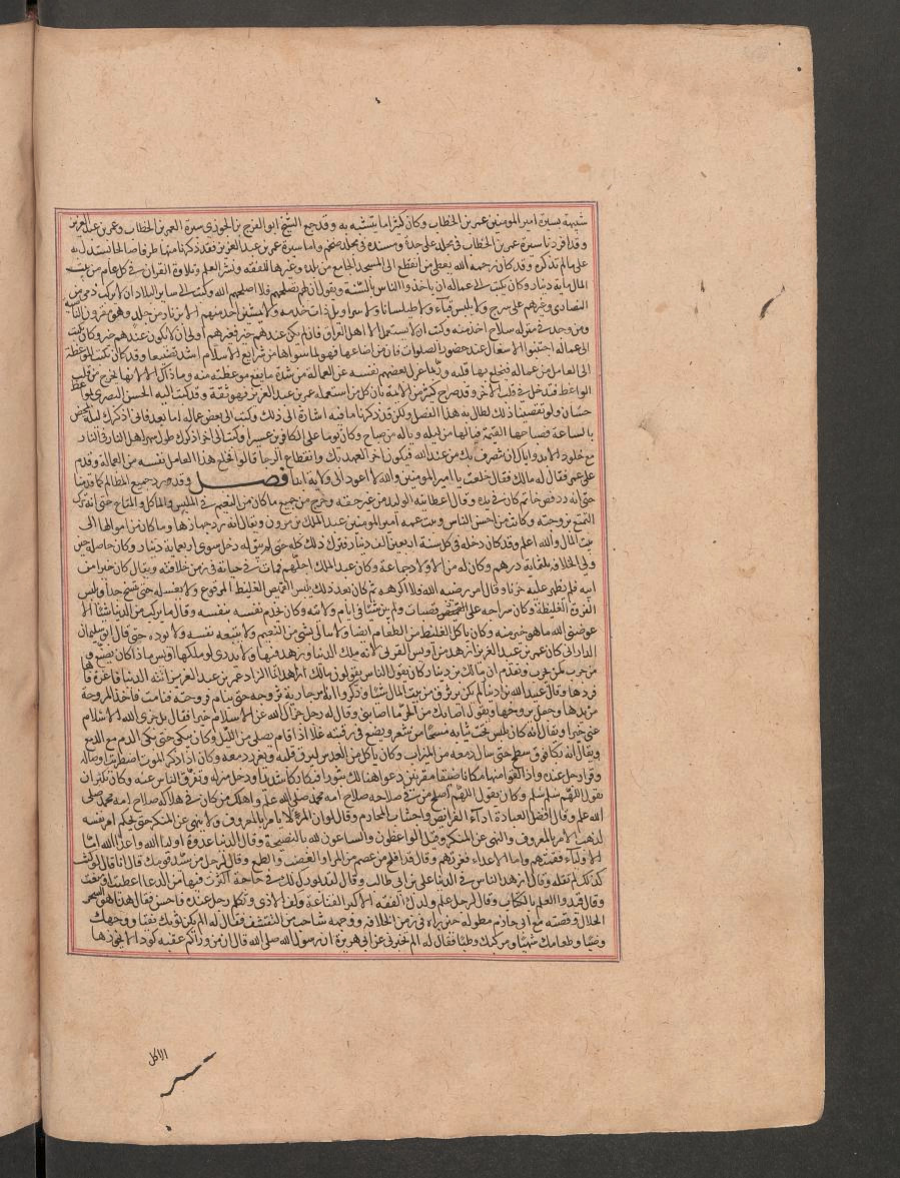 شبيهة بسيرة امير المومنين عمر بن الخطاب وكان كثيرا ما يتشبه به وقد جمع الشيخ ابو الفرج بن الجوزي سيرة العمرين عمر بن الخطاب وعمر بن عبد العزيز
وقد افردنا سيرة عمر بن الخطاب في مجلد على حدة ومسنده في مجلد ضخم واما سيرة عمر بن عبد العزيز فقد ذكرنا منها طرفا صالحا نستدل به
على ما لم نذكره وقد كان رحمه الله يعطي من انقطع الى المسجد الجامع من بلده وغيرها للفقه ونشر العلم وتلاوة القران في كل عام من بيت
المال ماية دينار وكان يكتب الى عماله ان ياخذوا الناس بالسنة ويقول ان لم تصلحهم فلا اصلحهم الله وكتب الى ساير البلاد ان لا يركب ذمي من
النصارى وغيرهم على سرج ولا يلبس قباء ولا طيلسانا ولا سراويل ذات خدمة ولا يمشين احد منهم الا بزنار من جلد وهو مقرون الناصية
ومن وجد في منزله سلاح اخذ منه وكتب ان لا يستعمل الا اهل القران فان لم يكن عندهم خير فغيرهم اولى ان لا يكون عندهم خير وكان يكتب
الى عماله اجتنبوا الاشغال عند حضور الصلوات فان من اضاعها فهو لما سواها من شرايع الاسلام اشد تضييعا وقد كان يكتب الموعظة
الى العامل من عماله فينخلع بها قلبه وربما عزل بعضهم نفسه عن العمالة من شدة ما يقع موعظته منه وما ذاك الا لانها تخرج من قلب
الواعظ فتدخل في قلب الاخر وقد صرح كثير من الائمة بان كل من استعمله عمر بن عبد العزيز فهو ثقة وقد كتب اليه الحسن البصري بمواعظ
حسان ولو تقصينا ذلك لطال به هذا الفصل ولكن قد ذكرنا ما فيه اشارة الى ذلك وكتب الى بعض عماله اما بعد فاني اذكرك ليلة تمخض
بالساعة فصباحها القيمة فيالها من ليلة وياله من صباح وكان يوما على الكافرين عسيرا وكتب الى اخر اذكرك طول سهر اهل النار في النار
مع خلود الابد واياك ان ينصرف بك من عند الله فيكون اخر العهد بك وانقطاع الرجا قالوا فخلع هذا العامل نفسه من العمالة وقدم
على عمر فقال له مالك فقال خلعت يا امير المومنين والله لا اعود الى ولاية ابدا فصل وقد رد جميع المظالم كما قدمنا
حتى انه رد فص خاتم كان في يده وقال اعطانيه الوليد من غير حقه وخرج من جميع ما كان من النعيم في الملبس والماكل والمتاع حتى انه ترك
التمتع بزوجته وكانت من احسن الناس وبنت عمه امير المومنين عبد الملك بن مروان ويقال انه رد جهازها وما كان من اموالها الى
بيت المال والله اعلم وقد كان دخله في كل سنة اربعين الف دينار فترك ذلك كله حتى لم يبق له دخل سوى اربعماية دينار وكان حاصله حين
ولي الخلافة ثلثماية درهم وكان له من الاولاد جماعة وكان عبد الملك اجلهم فمات في حياته في زمن خلافته ويقال كان خيرا من
ابيه فلم يظهر عليه حزنا وقال امر رضيه الله فلا اكرهه ثم كان بعد ذلك يلبس القميص الغليظ المرقوع ولا يغسله حتى يتسخ جدا ويلبس
الفروة الغليظة وكان سراجه على ثلاث قصبات ولم يبن شيئا في ايام ولايته وكان يخدم نفسه بنفسه وقال ما تركت من الدنيا شيئا الا
عوضني الله ما هو خير منه وكان ياكل الغليظ من الطعام ايضا ولا يبالي بشي من النعيم ولا يتبعه نفسه ولا يوده حتى قال ابو سليمان
الداراني كان عمر بن عبد العزيز ازهد من اويس القرني لانه ملك الدنيا وزهد فيها ولا يدرى لو ملكها اويس ماذا كان يصنع و
من جرب كمن لم يجرب وتقدم ان مالك بن دينار كان يقول الناس يقولون مالك ازاهد انما الزاهد عمر بن عبد العزيز اتته الدنيا فاغرة فاها
فردها وقال عبد الله بن دينار لم يكن يرتزق من بيت المال شيئا وذكروا انه امر جارية تروحه حتى ينام فروحته فنامت فاخذ المروحة
من يدها وجعل يروحها ويقول اصابك من الحر ما اصابني وقال له رجل جزاك الله عن الاسلام خيرا فقال بل جزى الله الاسلام
عني خيرا ويقال انه كان يلبس تحت ثيابه مسحا من شعر ويضع في رقبته غلا اذا قام يصلي من الليل وكان يبكي حتى بكى الدم مع الدمع
ويقال انه بكا فوق سطح حتى سال دمعه من الميزاب وكان ياكل من العدس ليرق قلبه وتغزر دمعه وكان اذا ذكر الموت اضطربت اوصاله
يقول اللهم سلم سلم وكان يقول اللهم اصلح من كان في صلاحه صلاح امة محمد صلى الله عليه واهلك من كان في هلاكه صلاح امة محمد صلى
الله عليه وقال افضل العبادة اداء الفرايض واجتناب المحارم وقال لو ان المرء لا يامر بالمعروف ولا ينهى عن المنكر حتى يحكم امر نفسه
لذهب الامر بالمعروف والنهي عن المنكر وقل الواعظون والساعون لله بالنصيحة وقال الدنيا عدوة اوليا الله واعدا الله اما
الاولياء فغمتهم واما الاعداء فغرتهم وقال قد افلح من عصم من المرا والغضب والطمع وقال لرجل من سيد قومك قال انا قال لو كنت
كذلك لم تقله وقال ازهد الناس في الدنيا علي بن ابي طالب وقال لقد بورك لك في حاجة اكثرت فيها من الدعا اعطيت او منعت
وقال قيدوا العلم بالكتاب وقال لرجل علم ولدك الفقه الاكبر القناعة وكف الاذى وتكلم رجل عنده فاحسن فقال هذا هو السحر
الحلال وقصته مع ابي حازم مطولة حين راه في زمن الخلافة ووجهه شاحب من التقشف فقال له الم يكن ثوبك نقيا ووجهك
وضيا وطعامك شهيا ومركبك وطيا فقال له الم تخبرني عن ابي هريرة ان رسول الله صلى الله قال ان من ورائكم عقبة كؤدا لا يجوزها
الا كل